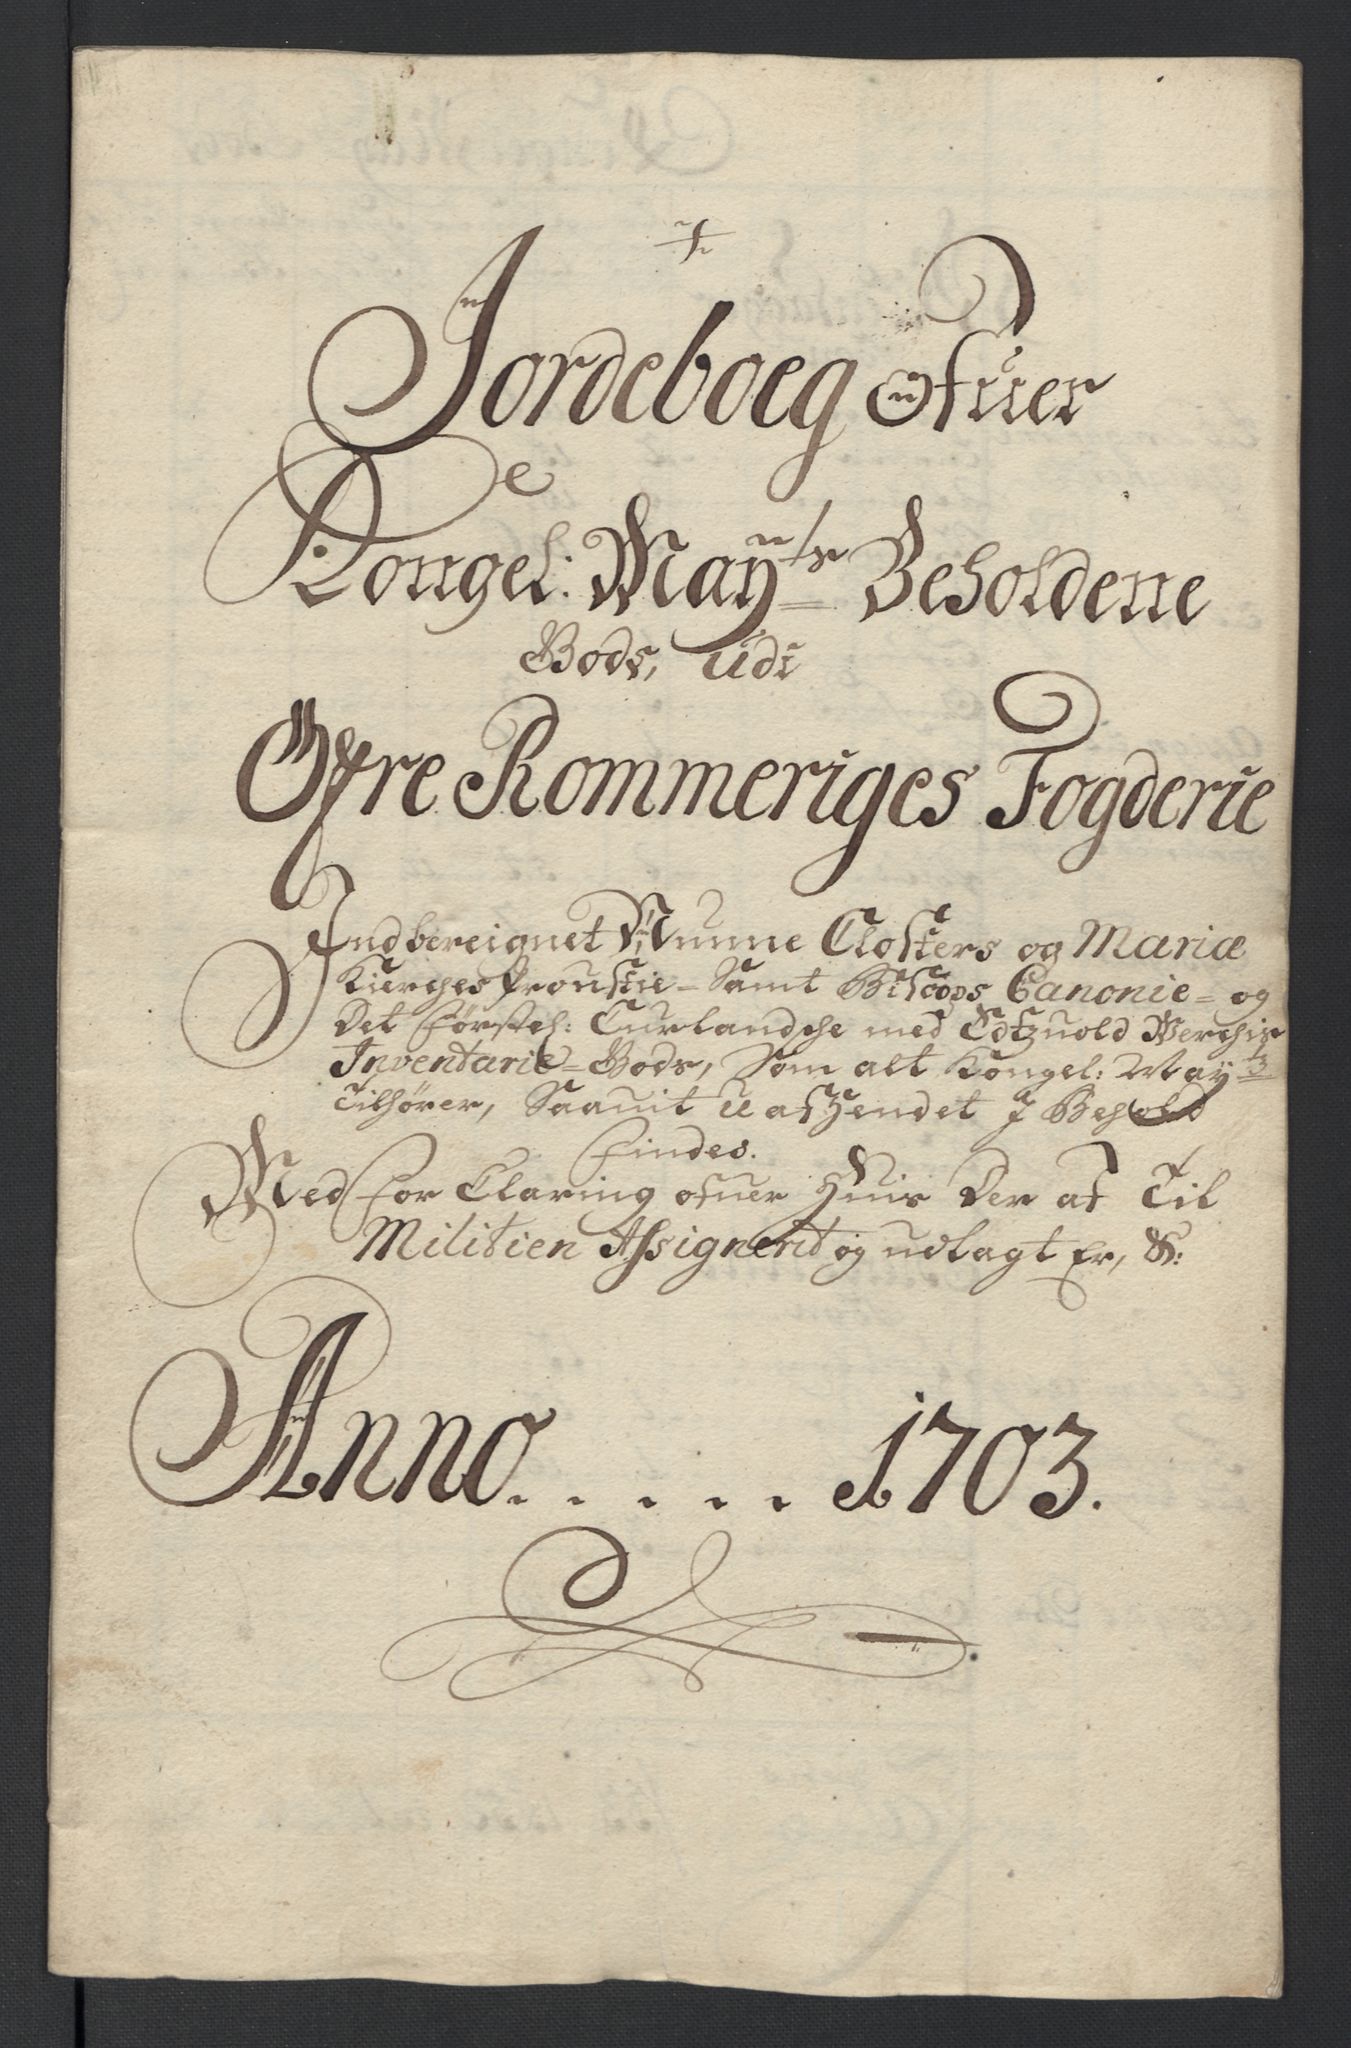 Jordeboeg Ofuer
Kongel: Mayts Beholdene
Gods, udi
Øfre Rommeriges Fogderie
Indbereignet Nunne Closters og Mariæ
Kierches Proustie- Samt Biscops Canonie= og
det Førstel: Curlandsche med Edtzuold Verchis
Inventarie=Gods, Som alt Kongel: Mayts
Tilhører, Saauit uafhendet J Behold
findes.
Med for Claring ofuer Huis der af Til
Militien Assignerit og udlagt Er, &:
Anno. . . . . 1703.